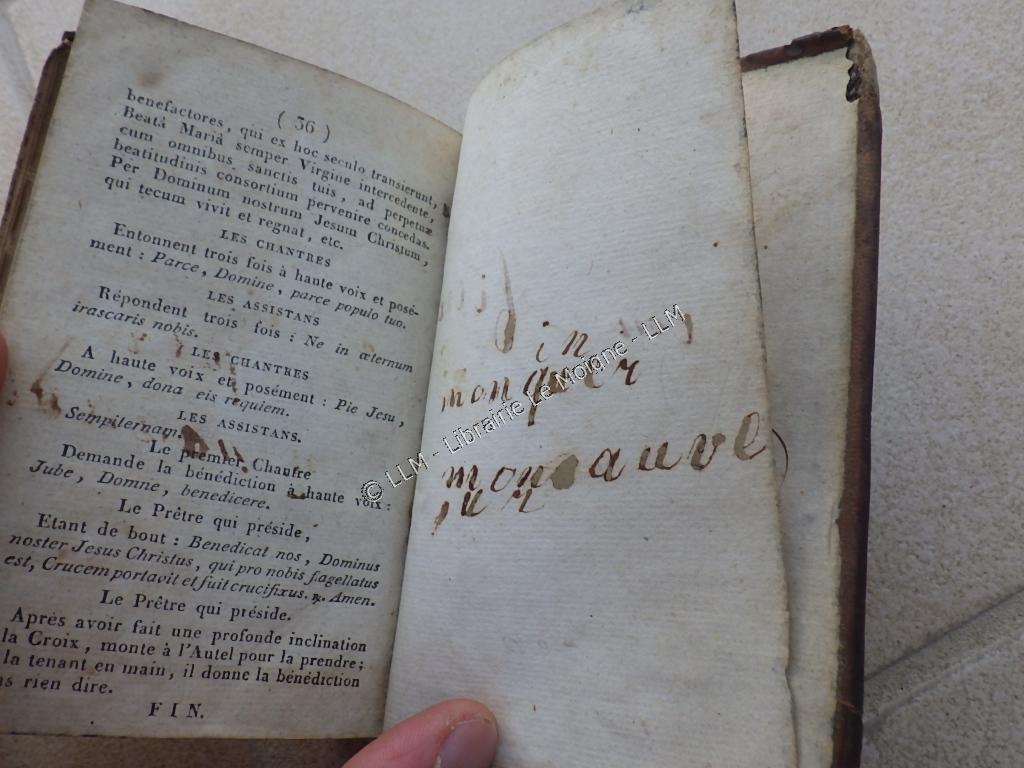 ( 36 )
benefactores, qui ex hoc seculo transierunt,
Beatâ Mariâ semper Virgine intercedente,
cum omnibus sanctis tuis, ad perpetuæ
beatitudinis consortium pervenire concedas.
Per Dominum nostrum Jesum Christum,
qui tecum vivit et regnat, etc.
LES CHANTRES
Entonnent trois fois à haute voix et posé-
ment : Parce, Domine, parce populo tuo.
LES ASSISTANS
Répondent trois fois : Ne in æternum
irascaris nobis.
LES CHANTRES
A haute voix et posément : Pie Jesu,
Domine, dona eis requiem.
LES ASSISTANS.
Sempiternam.
Le premier Chantre
Demande la bénédiction à haute voix :
Jube, Domne, benedicere.
Le Prêtre qui préside,
Etant de bout : Benedicat nos, Dominus
noster Jesus Christus, qui pro nobis flagellatus
est, Crucem portavit et fuit crucifixus. ℟. Amen.
Le Prêtre qui préside.
Après avoir fait une profonde inclination
la Croix, monte à l'Autel pour la prendre;
la tenant en main, il donne la bénédiction
rien dire.
FIN.
in
mon
mon sauve
ur
© LLM - Librairie Le Moigne - LLM